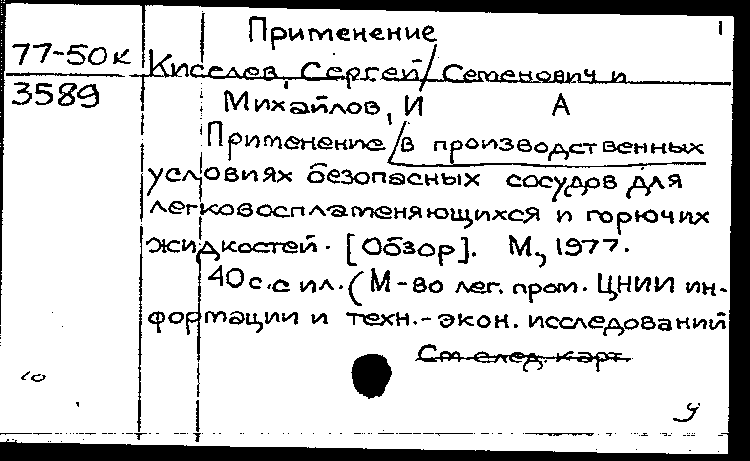 Применение
1
77-50к
Киселев, Сергей Семенович и
3589
Михайлов, И А
Применение в производственных
условиях безопасных сосудов для
легковоспламеняющихся и горючих
жидкостей. [Обзор]. М., 1977.
40 с. с ил. (М-во лег. пром. ЦНИИ ин-
формации и техн.-экон. исследований
См след. карт.
10